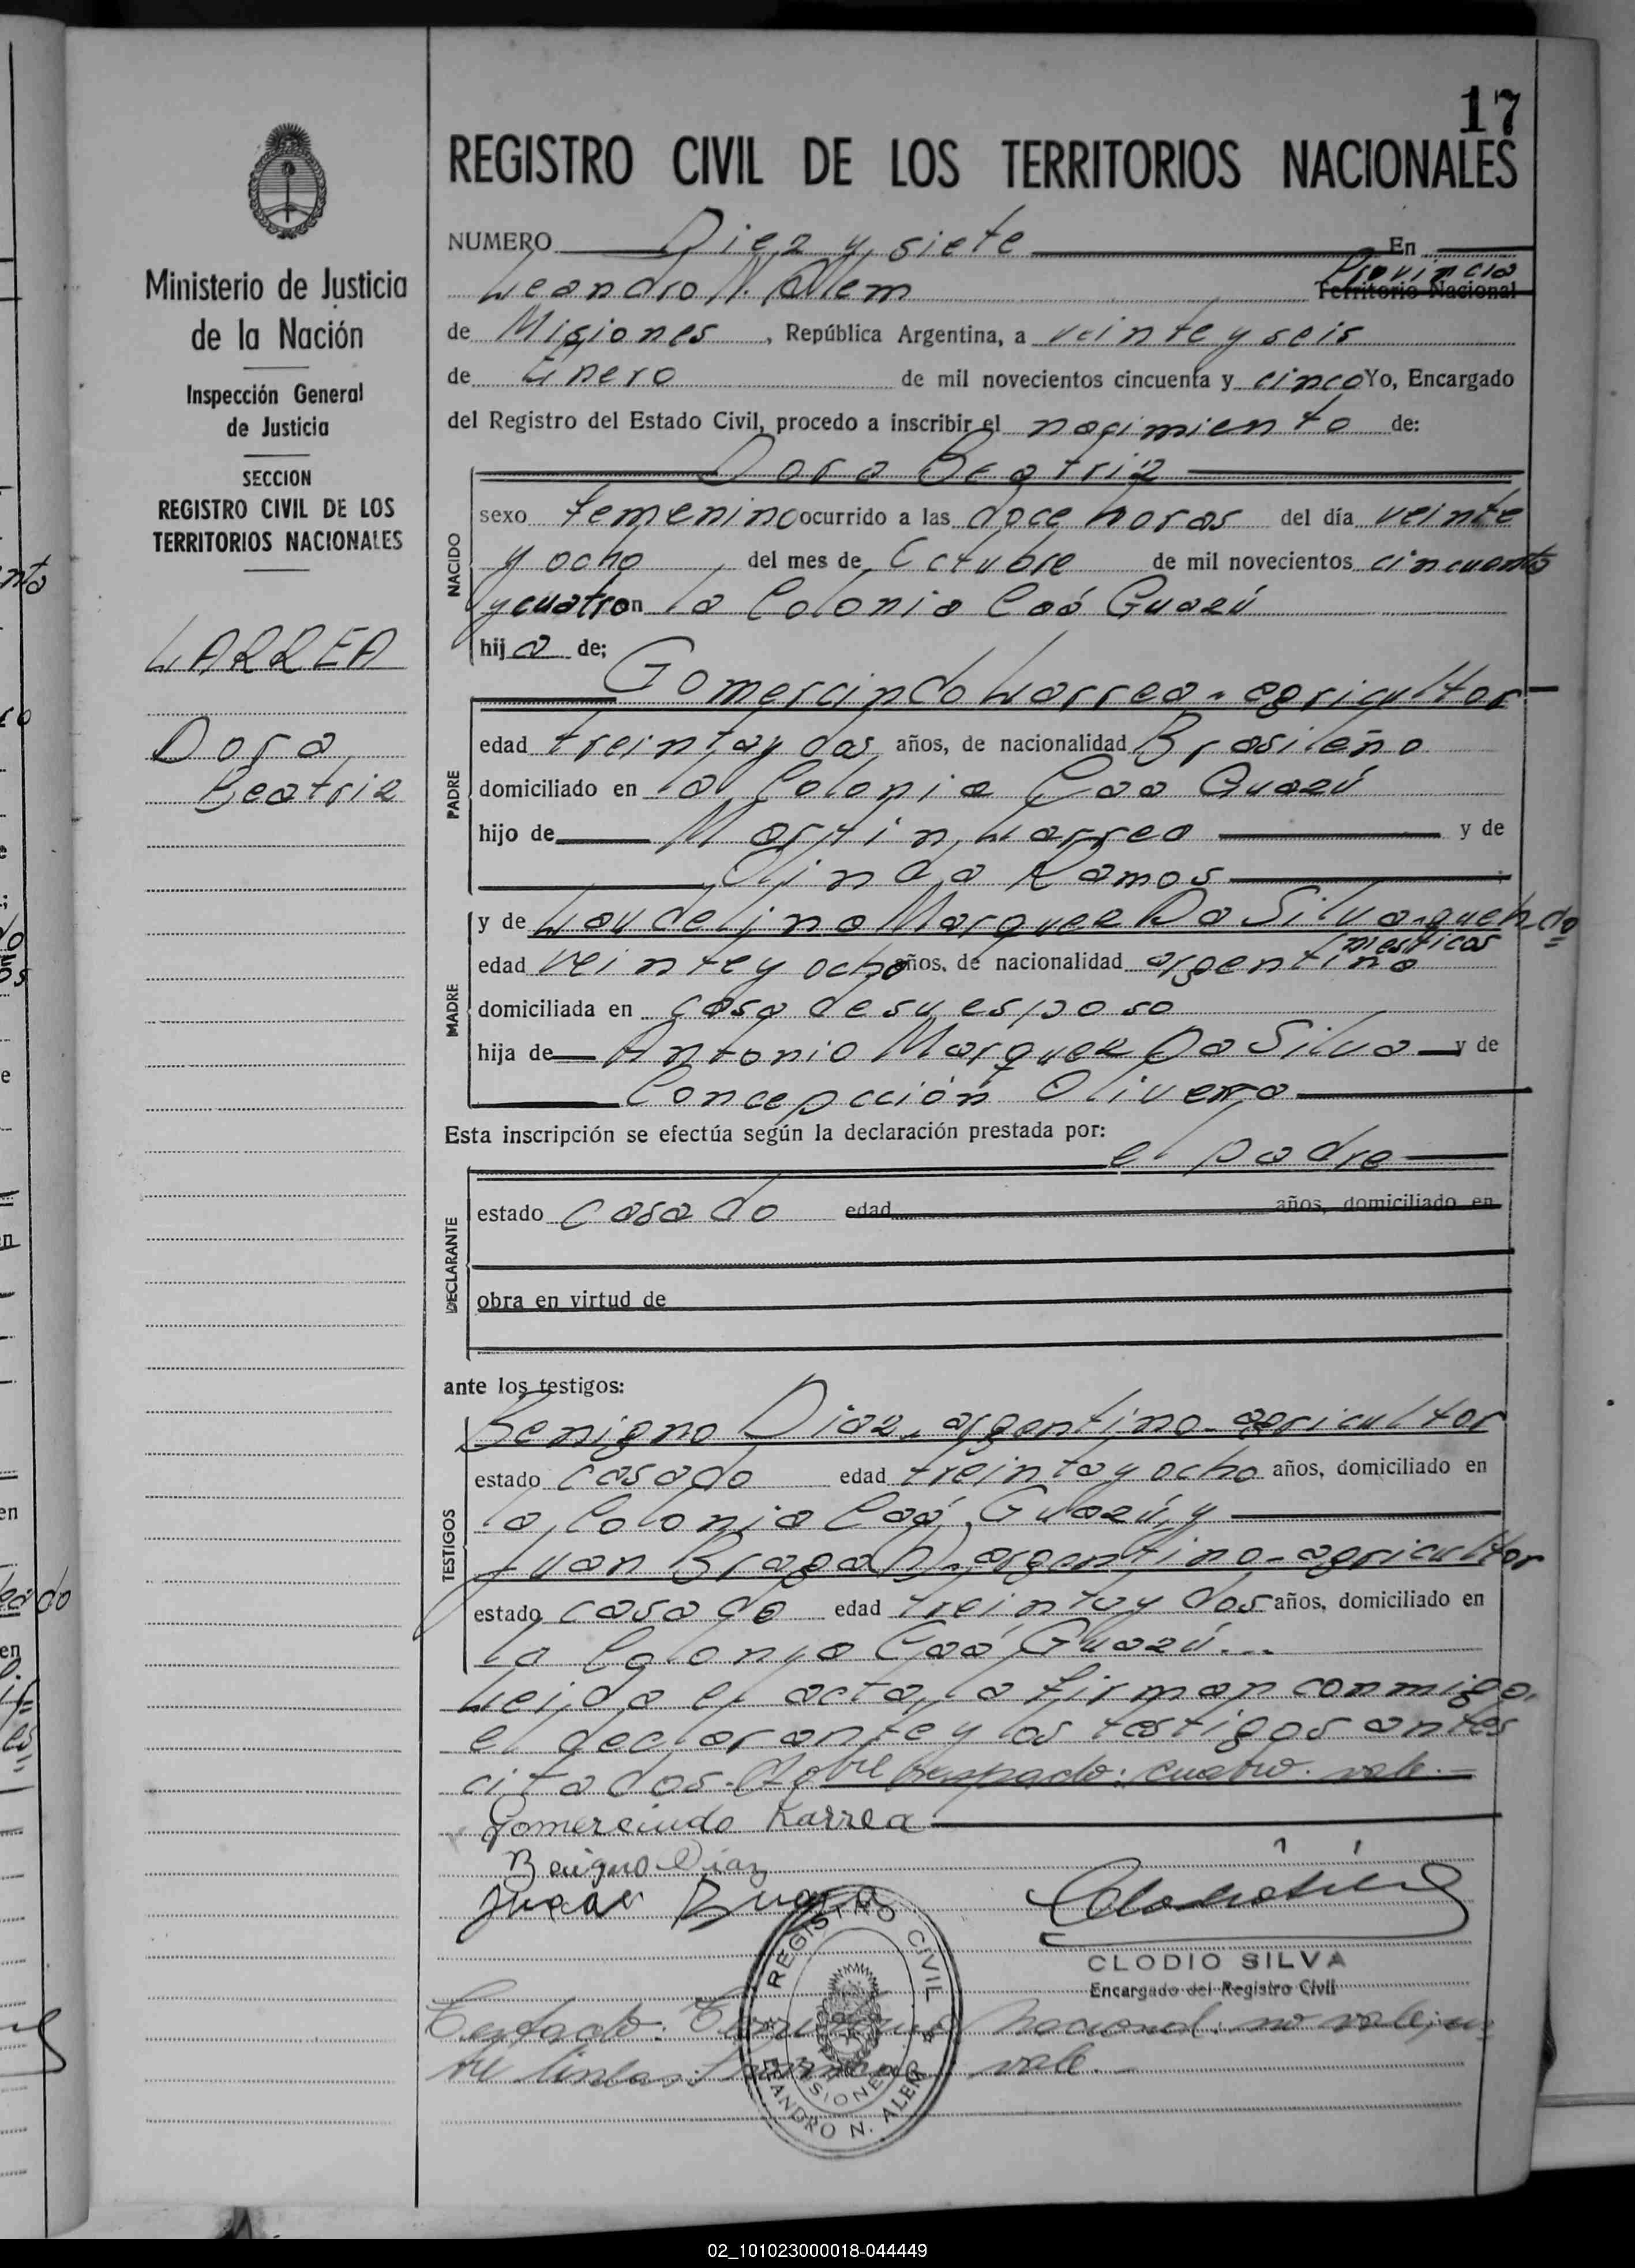 17
REGISTRO CIVIL DE LOS TERRITORIOS NACIONALES
Ministerio de Justicia
de la Nación
Inspección General
de Justicia
SECCION
REGISTRO CIVIL DE LOS
TERRITORIOS NACIONALES
LARREA
Dora
Beatriz
NUMERO Diez y siete En
Leandro N. Alem Provincia Territorio Nacional
de Misiones, República Argentina, a veinte y seis
de Enero de mil novecientos cincuenta y cinco Yo, Encargado
del Registro del Estado Civil, procedo a inscribir el nacimiento de:
Dora Beatriz
NACIDO
sexo femenino ocurrido a las doce horas del día veinte
y ocho del mes de Octubre de mil novecientos cincuenta
y cuatro en la Colonia Caá Guazú
hija de;
Gomercindo Larrea - agricultor
PADRE
edad treinta y dos años, de nacionalidad Brasileño
domiciliado en la Colonia Caa Guazú
hijo de Martin Larrea y de
Olinda Ramos
MADRE
y de Laudelina Marquez Da Silva - queh. do
mesticos
edad veinte y ocho años, de nacionalidad argentina
domiciliada en casa de su esposo
hija de Antonio Marquez Da Silva y de
Concepcción Olivera
Esta inscripción se efectúa según la declaración prestada por:
el padre
DECLARANTE
estado casado edad años, domiciliado en
obra en virtud de
ante los testigos:
TESTIGOS
Benigno Diaz, argentino - agricultor
estado casado edad treinta y ocho años, domiciliado en
la Colonia Caá Guazú, y
Juan Braga (h) - argentino - agricultor
estado casado edad treinta y dos años, domiciliado en
la Colonya Caá Guazú...
Leida el acta, la firman conmigo,
el declarante y los testigos antes
citados. - Sobre raspado: cuatro. vale. -
Gomercindo Larrea
Benigno Diaz
Juan Braga
CLODIO SILVA
Encargado del Registro Civil
REGISTRO CIVIL
MISIONES
LEANDRO N. ALEM
Testado: Territorio Nacional: no vale; en
tre lineas: Provincia vale. -
02_101023000018-044449